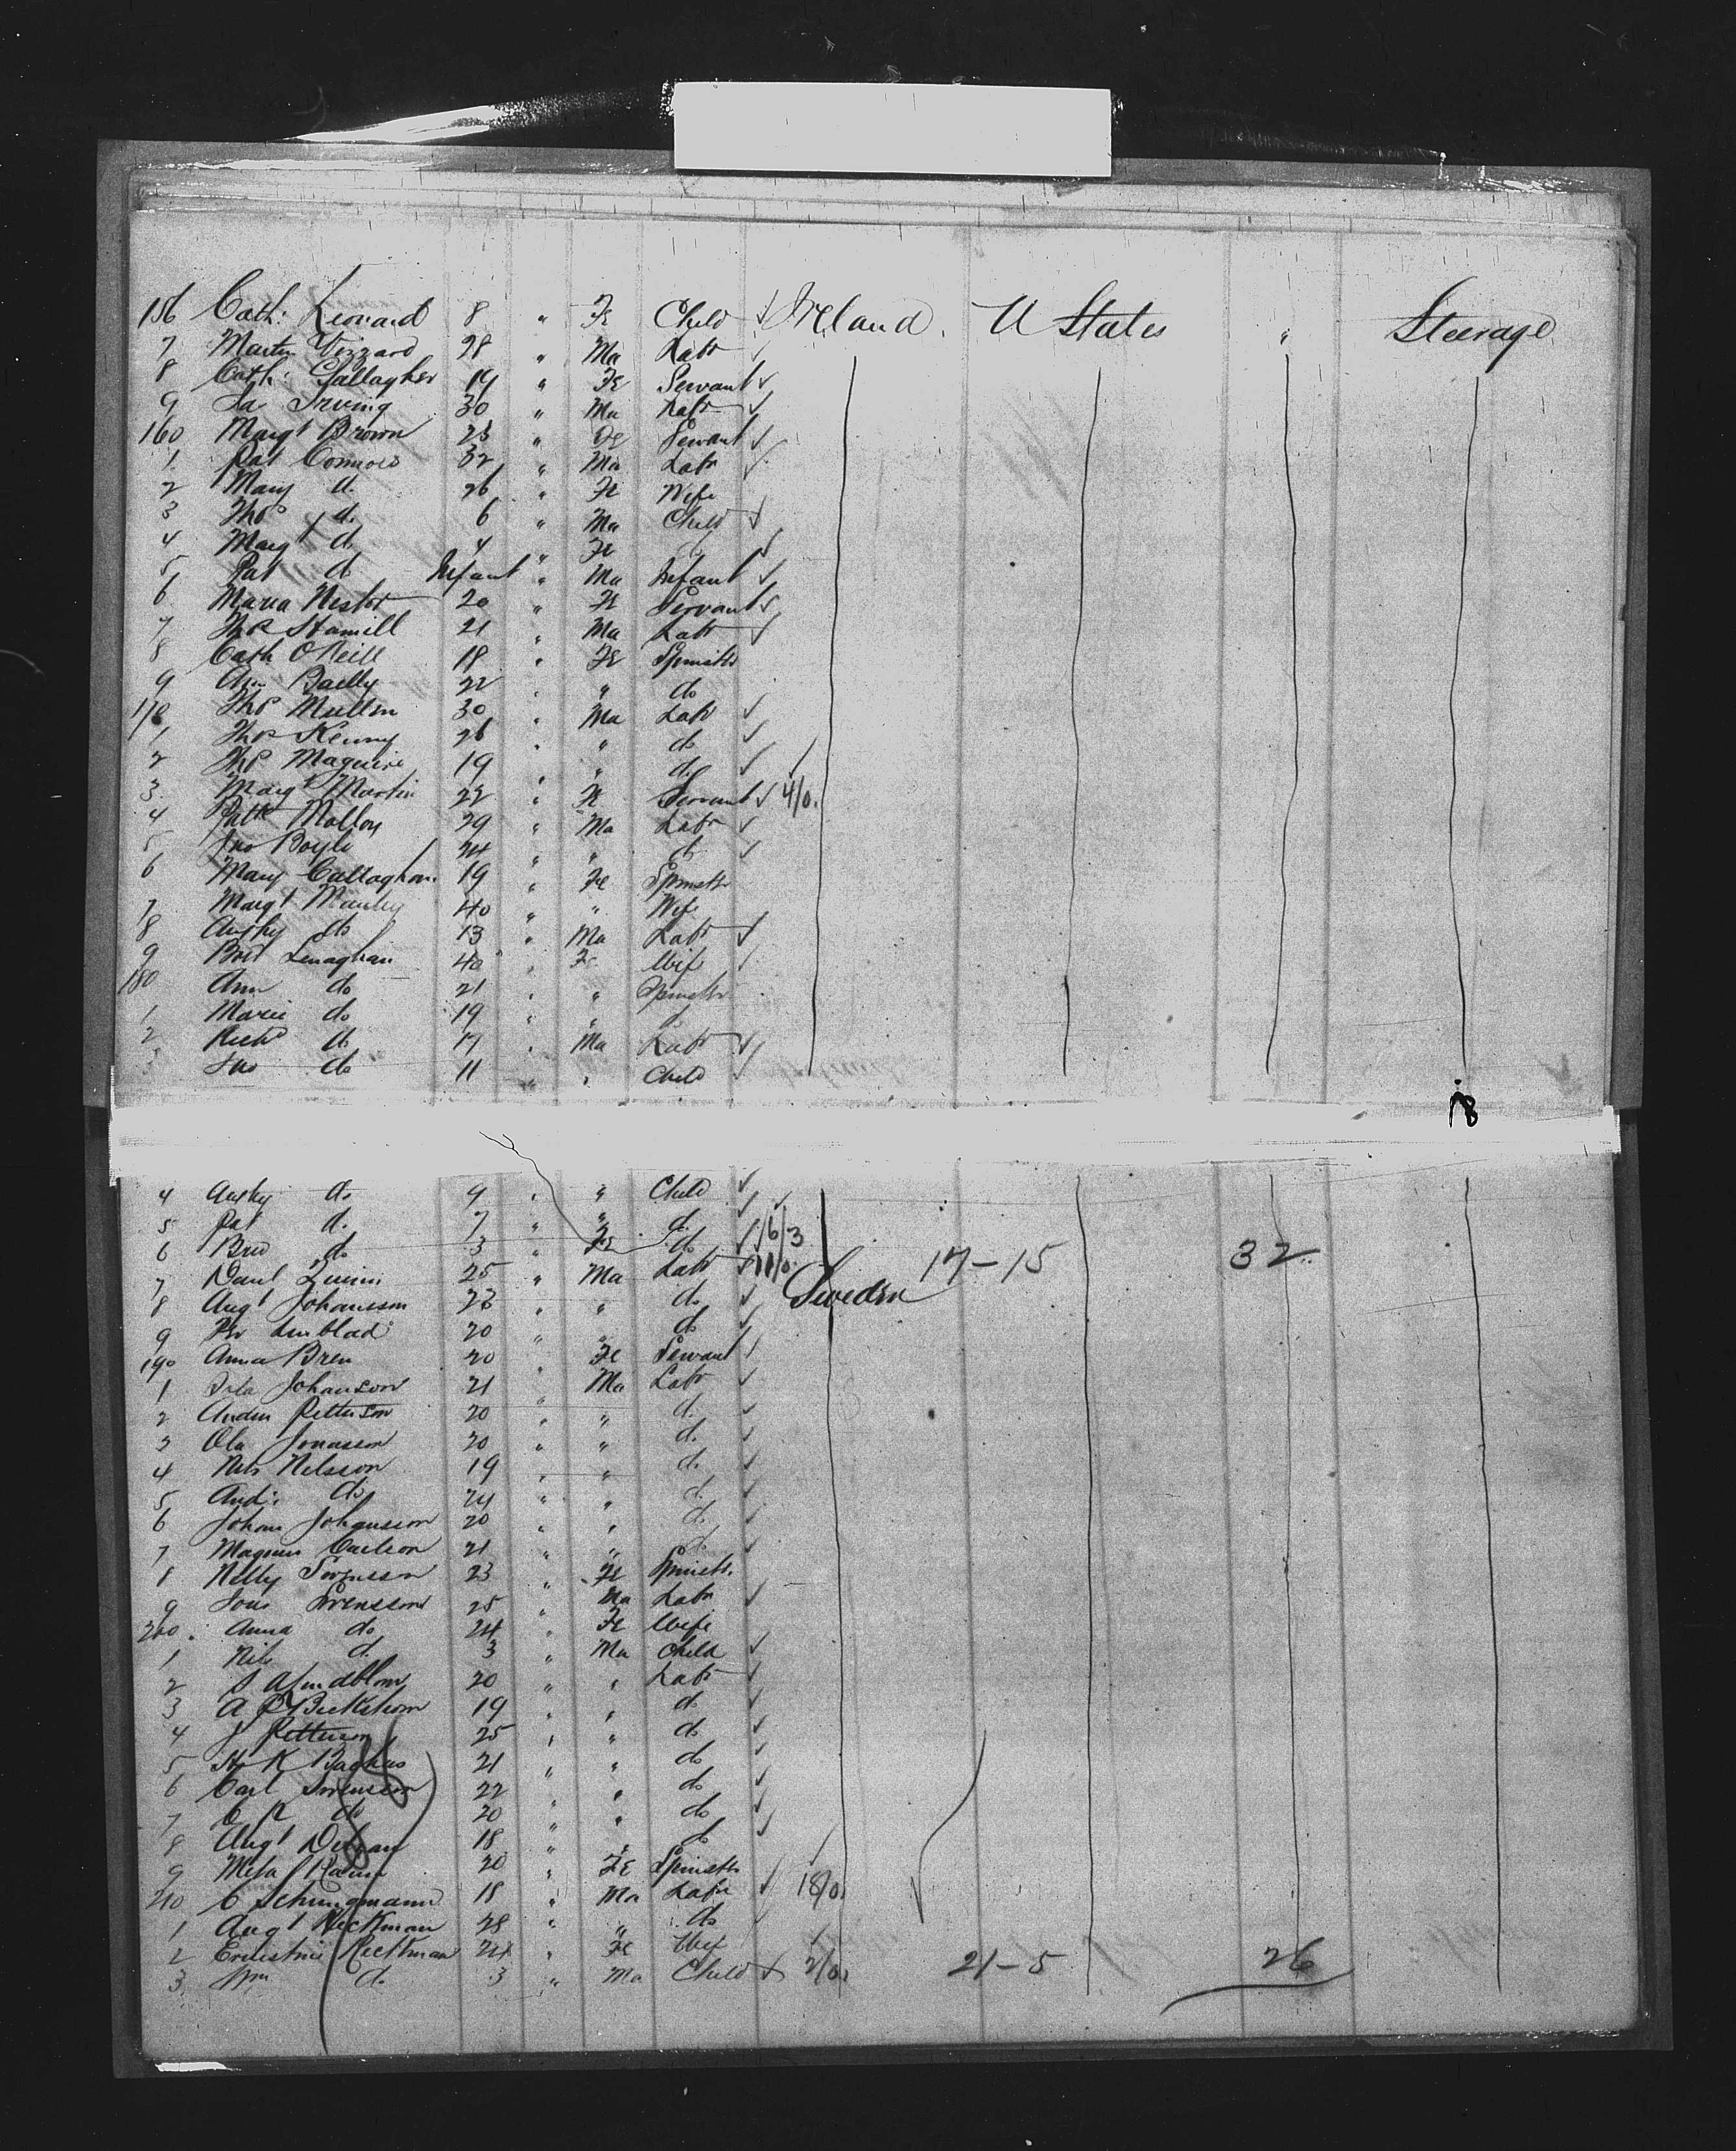 156 Cath: Leonard 8 " Fe Child Ireland. U States " Steerage
7 Martin Vizzard 28 " Ma Labr
8 Cath: Gallagher 19 " Fe Servant
9 Ja Irving 30 " Ma Labr
160 Margt Brown 23 " Fe Servant
1 Pat Connors 32 " Ma Labr
2 Mary d. 26 " Fe Wife
3 Thos d. 6 " Ma Child
4 Margt do 4 " Fe
5 Pat do Infant " Ma Infant
6 Maria Nestor 20 " Fe Servant
7 Thos Hamill 21 " Ma Labr
8 Cath O'Neill 18 " Fe Spinster
9 Ann Bailly 22 " " do
170 Thos Mullin 30 " Ma Labr
1 Thos Kenny 26 " " do
2 Thos Maguire 19 " " d.
3 Margt Martin 22 " Fe Servant 4/0.
4 Patk Malloy 29 " Ma Labr
5 Jno Boyle 24 " " d.
6 Mary Callaghan 19 " Fe Spinstr
7 Margt Manley 40 " " Wife
8 do 13 " Ma Labr
9 Brid Lenaghan 40 " Fe Wife
180 Ann do 21 " " Spinstr
1 Maria do 19 " "
2 Richd do 17 " Ma Labr
3 Jno do 11 " " Child
18
4 do 9 " " Child
5 Pat d. 7 " " d. 6/3
6 Brid do 3 " Fe do 17-15 32
7 Danl Quinn 25 " Ma Labr 11/0.
8 Augt Johansson 23 " " do Sweden
9 Linblad 20 " " do
190 Anna Bren 20 " Fe Servant
1 Johanson 21 " Ma Labr
2 Anders Petterson 20 " " d.
3 Ola Jonasson 20 " " d.
4 Nils Nelsson 19 " " d.
5 Andr. do 24 " " d.
6 Johan Johansson 20 " " do
7 Magnus Carlson 21 " " do
8 Nelly Svensson 23 " Fe Spinstr.
9 Jons Svensson 25 " Ma Labr
200. Anna do 24 " Fe Wife
1 Nils d. 3 " Ma Child
2 Lindblom 20 " " Labr
3 A P Beckstrom 19 " " do
4 J Petterson 25 " " do
5 K Baghus 21 " " do
6 Carl Svensson 22 " " do
7 C P do 20 " " do
8 Augt 18 " " do
9 Meta 20 " Fe Spinstr
210 C Schungmann 18 " Ma Labr 18/0.
1 Augt Rickman 28 " " do
2 Ernestine Rickman 24 " Fe Wife
3 Wm d. 3 " Ma Child 2/0. 21-5 26